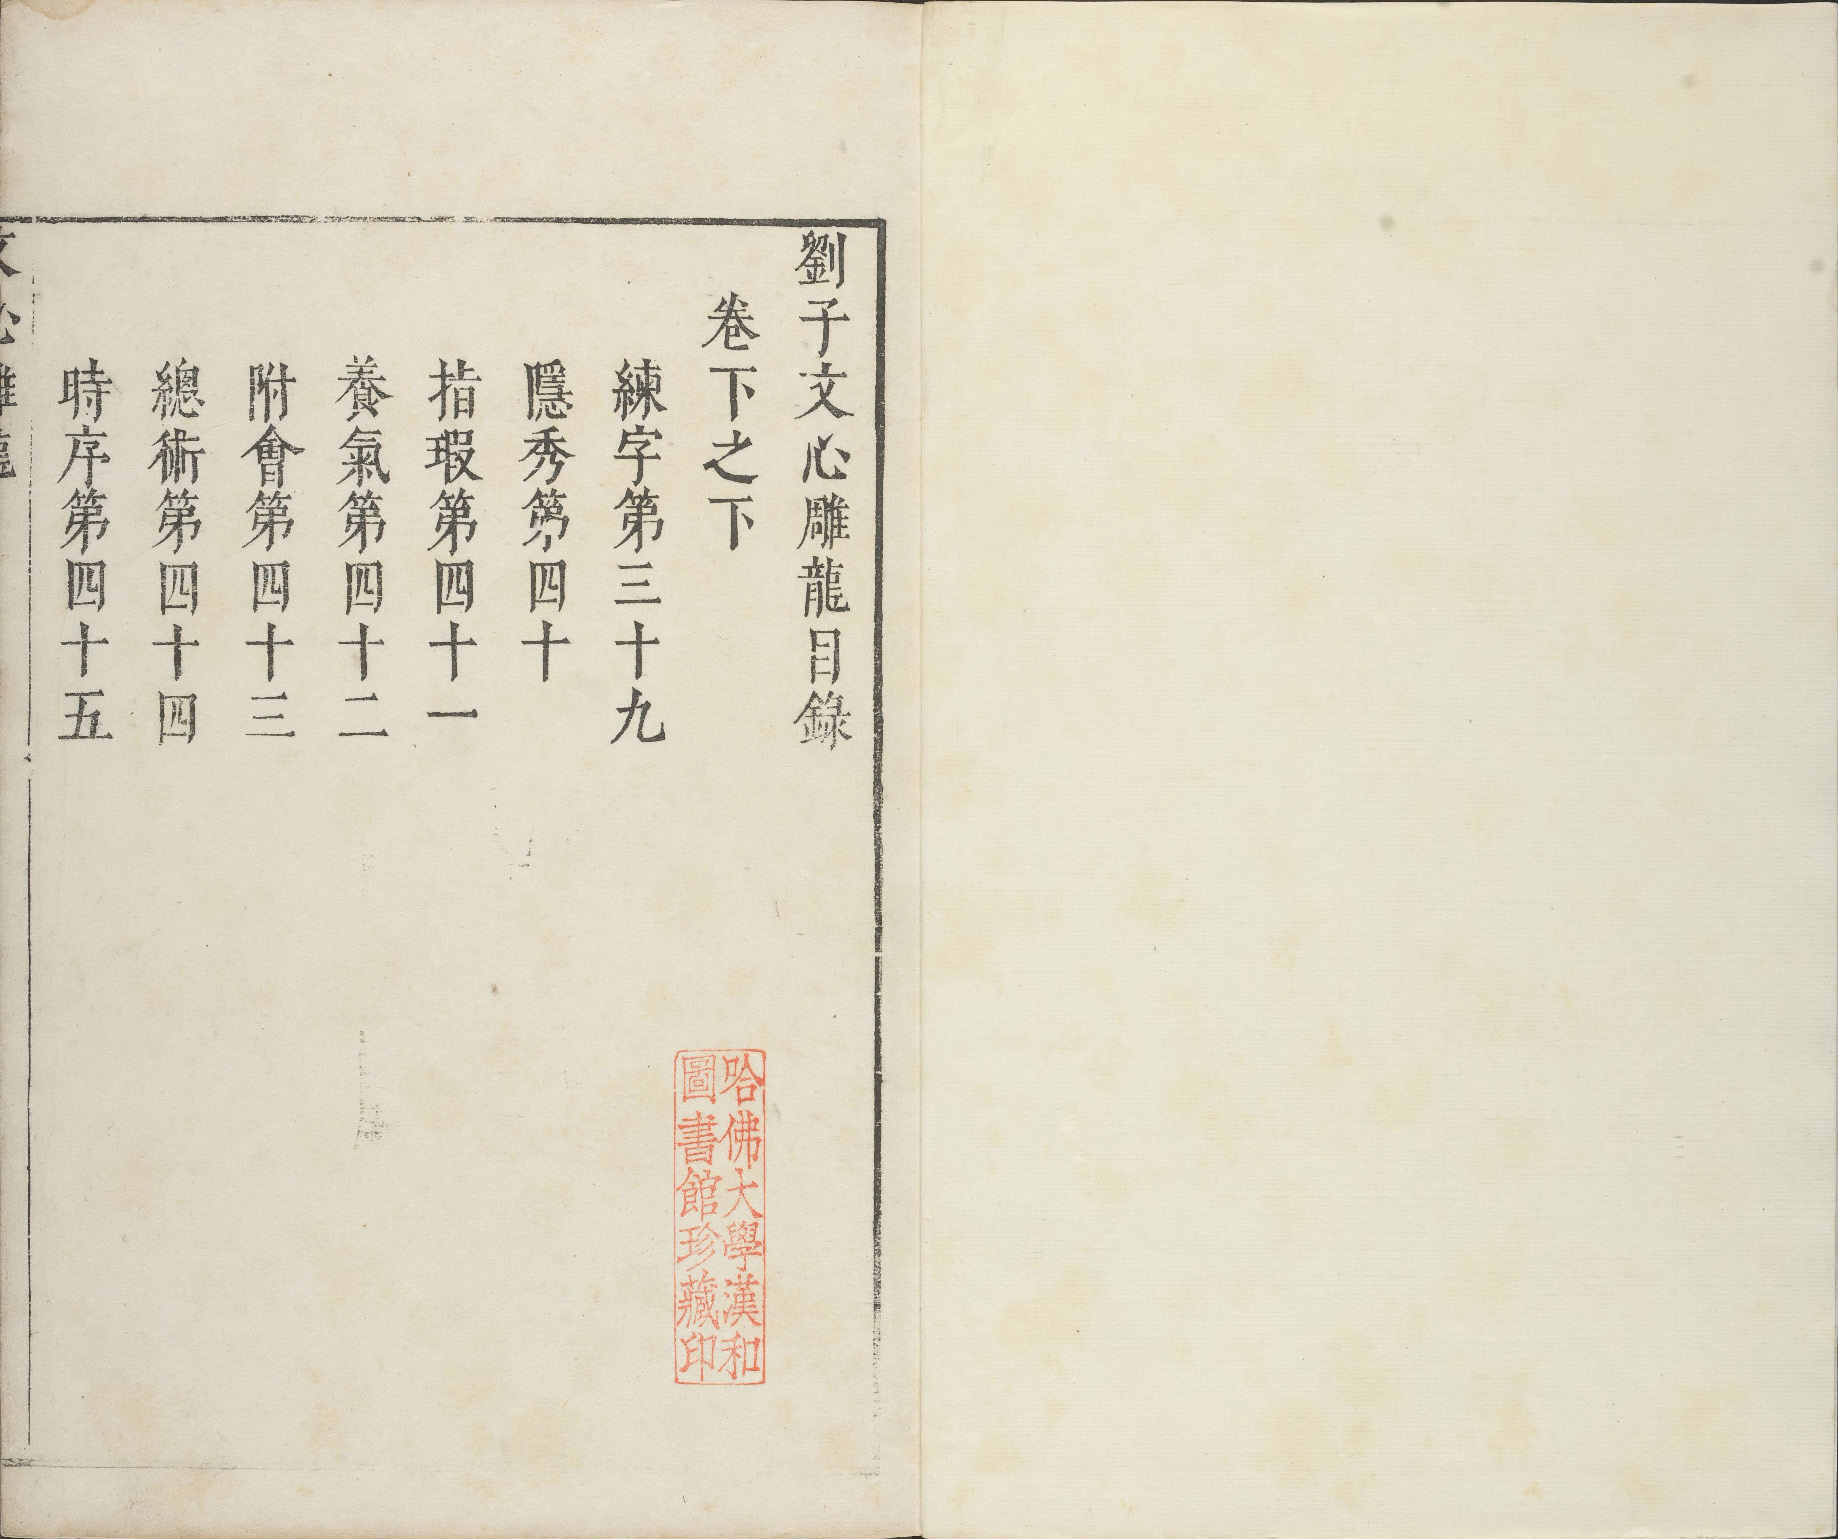 劉子文心雕龍目錄
卷下之下
練字第三十九
隱秀第四十
指瑕第四十一
養氣第四十二
附會第四十三
總術第四十四
時序第四十五
文心雕龍
哈佛大學漢和
圖書館珍藏印